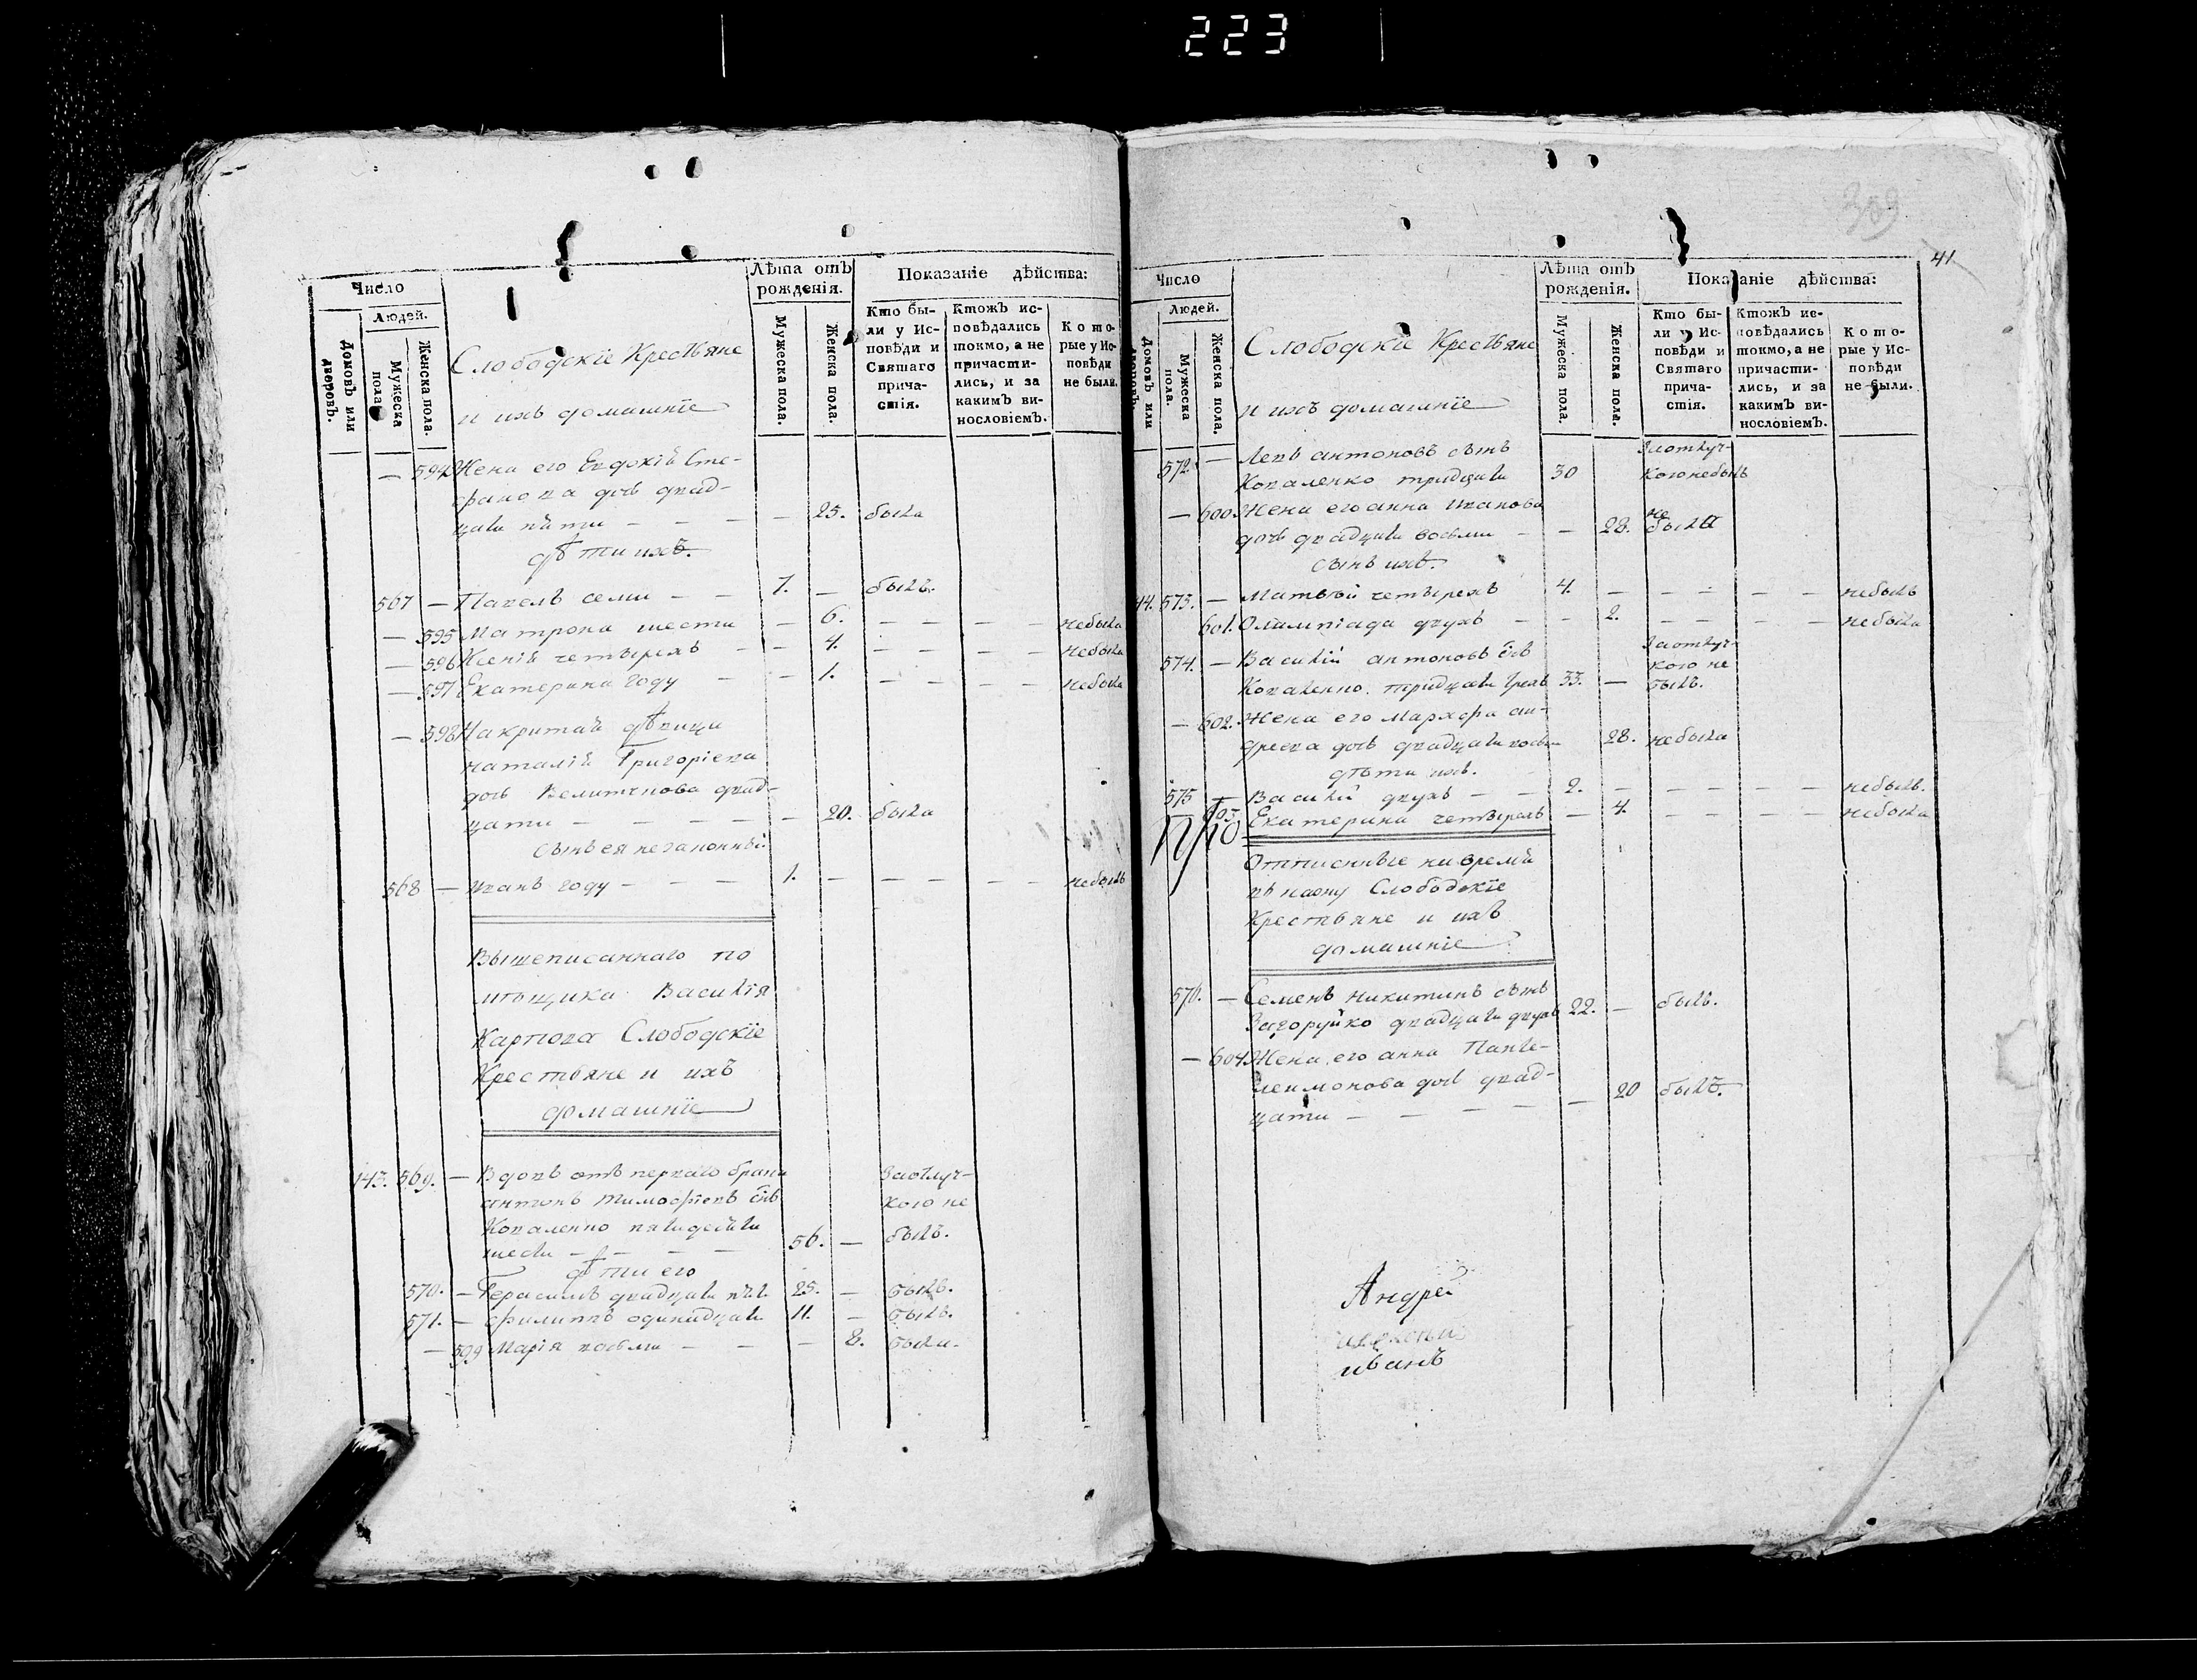 223
Число
Людей.
Домовъ или дворовъ.
Мужеска пола.
Женска пола.
Слободскіе Крестьяне
и ихъ домашніе
Лѣта отъ рожденія.
Мужеска пола.
Женска пола.
Показаніе дѣйства:
Кто были у Исповѣди и Святаго причастія.
Ктожъ исповѣдались токмо, а не причастились, и за какимъ винословіемъ.
Которые у Исповѣди не были.
— 594 Жена его Евдокія Сте-
фанова дочь двад-
цати пяти — — — — 25. была
дѣти ихъ.
567 — Павелъ семи — — 7. — былъ.
— 595 Матрона шести — 6. — — — — небыла
— 596 Ксенія четырехъ — — 4. — — — — небыла
— 597 Екатерина году — — 1. — — — — небыла
— 598 дѣвица
Наталія Григоріева
дочь двад-
цати — — — — — 20. была
сынъ ея незаконный
568 — Иванъ году — — — 1. — — — — — небылъ
Вышеписаннаго по
мѣщика Василія
Карпова Слободскіе
Крестьяне и ихъ
домашніе
143. 569. — Вдовъ отъ перваго брака Заотлуч-
антонъ тимофѣевъ снъ кою не
Коваленко пятидесяти
шести — — — — 56. — былъ.
дѣти его
570. — Герасимъ двадцати пяти 25. — былъ.
571. — филиппъ одинадцати 11. — былъ.
— 599 Марія восьми — — — 8. была.
309
41
Число
Людей.
Домовъ или дворовъ.
Мужеска пола.
Женска пола.
Слободскіе Крестьяне
и ихъ домашніе
Лѣта отъ рожденія.
Мужеска пола.
Женска пола.
Показаніе дѣйства:
Кто были у Исповѣди и Святаго причастія.
Ктожъ исповѣдались токмо, а не причастились, и за какимъ винословіемъ.
Которые у Исповѣди не были.
572 — Левъ антоновъ сынъ Заотлуч-
Коваленко тридцати 30 кою небылъ
— 600 Жена его анна Иванова не
дочь двадцати восьми — — 28. была
сынъ ихъ.
44. 573. — Матвѣй четырехъ 4. — — — — — небылъ
601. Олимпіада двухъ — — 2. — — — — небыла
574. — Василій антоновъ снъ Заотлуч-
кою не
Коваленко тридцати трехъ 33. — былъ.
— 602. Жена его Марфа ан-
дреева дочь двадцати восьми 28. небыла
дѣти ихъ.
575 — Василій двухъ — — 2. — — — — — небылъ.
603. Екатерина четырехъ — 4. — — — — небыла
Отписные
Слободскіе
Крестьяне и ихъ
домашніе
576. — Семенъ Никитинъ сынъ
Загоруйко двадцати двухъ 22. — былъ.
— 604 Жена его анна Панте-
леимонова дочь двад-
цати — — — — — 20 былъ.
Андрей
иванъ